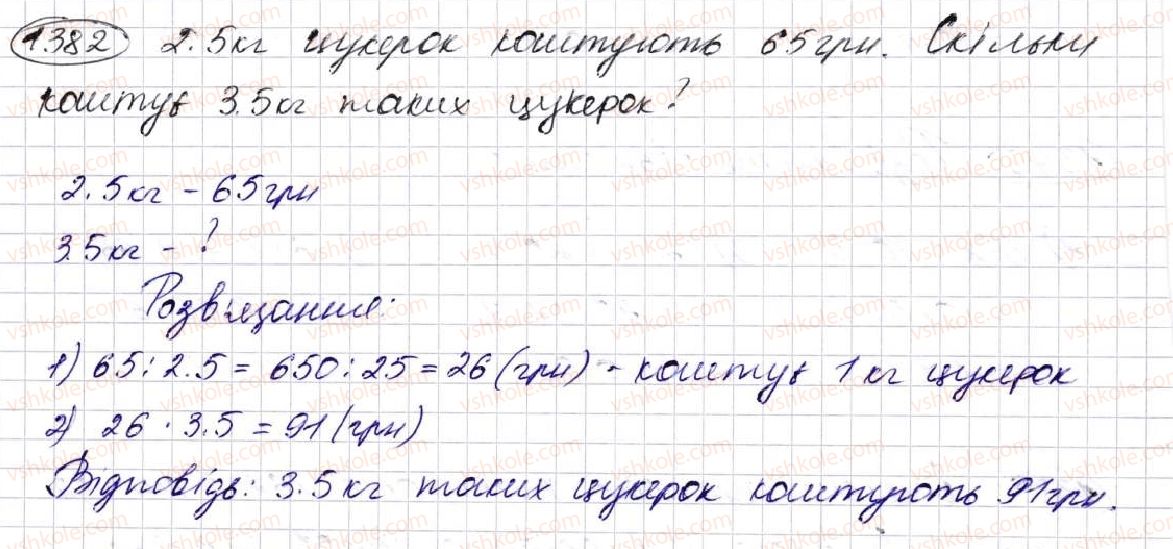 1382 2.5кг цукерок коштують 65грн. Скільки
коштує 3.5кг таких цукерок?
2.5кг - 65грн
3.5кг - ?
Розв'язання:
1) 65:2.5 = 650:25 = 26(грн) - коштує 1кг цукерок
2) 26 · 3.5 = 91(грн)
Відповідь: 3.5кг таких цукерок коштують 91грн.